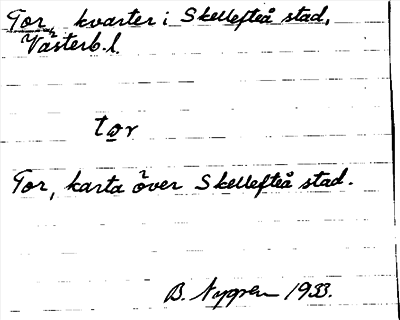 Tor, kvarter i Skellefteå stad,
Västerb. l.
tor
Tor, karta över Skellefteå stad.
B. Nygren 1933.